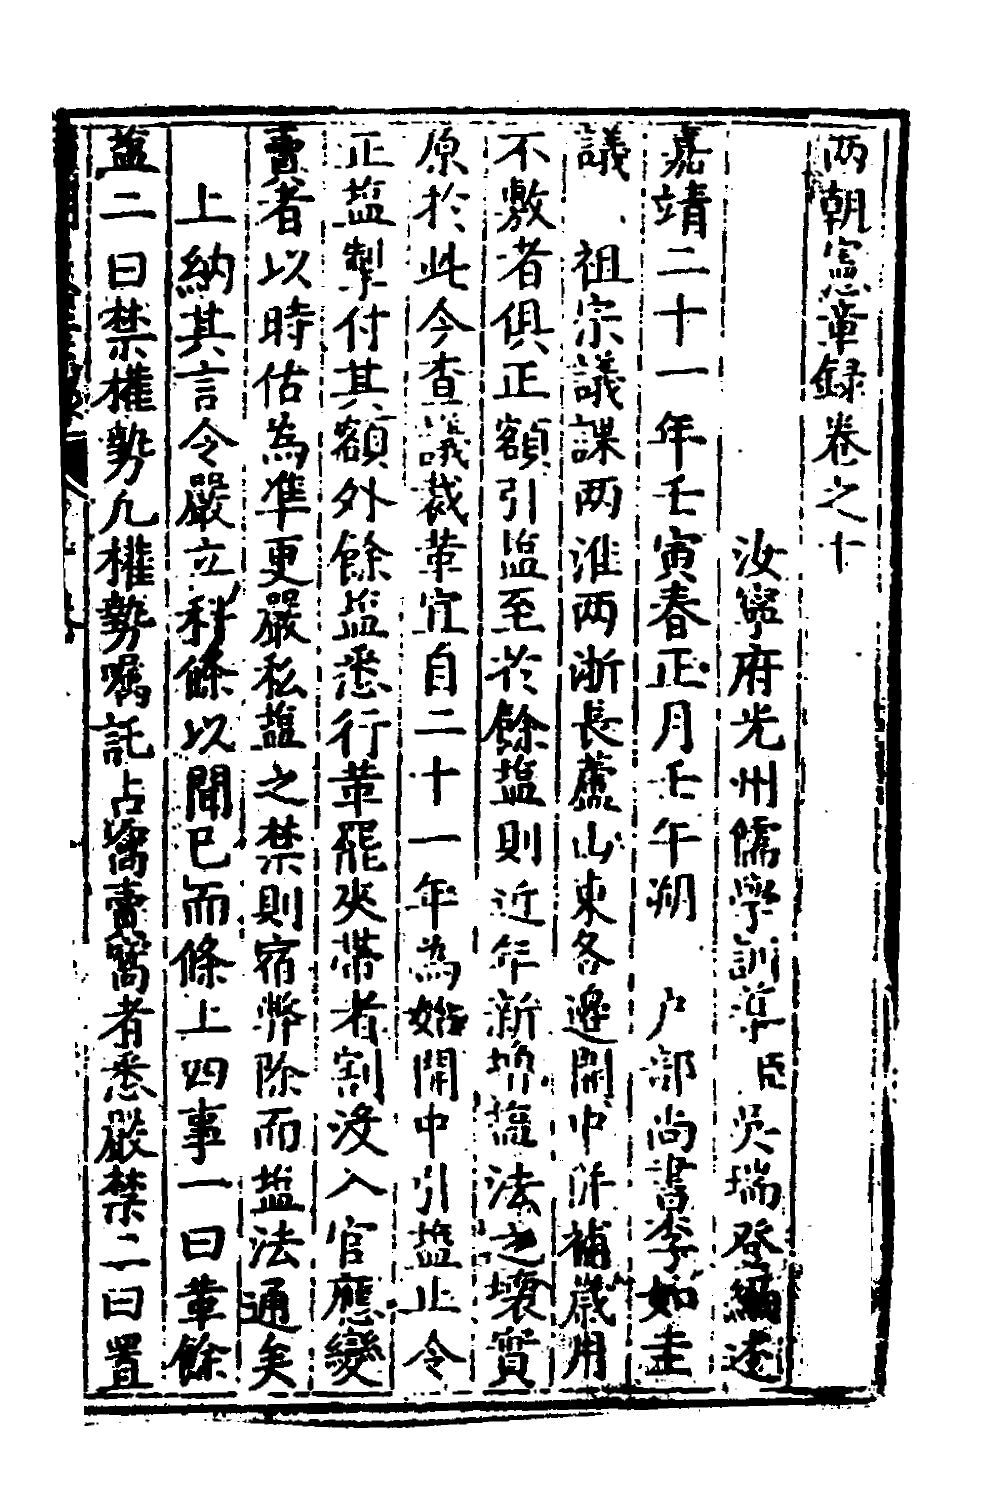 兩朝憲章録卷之十
汝寧府光州儒學訓導臣吳瑞登編述
嘉靖二十一年壬寅春正月壬午朔 户部尚書李如圭
議 祖宗議課两淮两浙長蘆山東各邊開中許補歲用
不敷者俱正額引盐至於餘塩則近年新增塩法之壞實
原於此今查議裁革宜自二十一年為始開中引盐止令
正盐掣付其額外餘盐悉行革罷夾帶者割没入官應變
賣者以時估為準更嚴私盐之禁則宿弊除而盐法通矣
上納其言令嚴立科條以聞已而條上四事一曰革餘
盐二曰禁權勢九權勢嘱託占窩賣窩者悉嚴禁二曰置